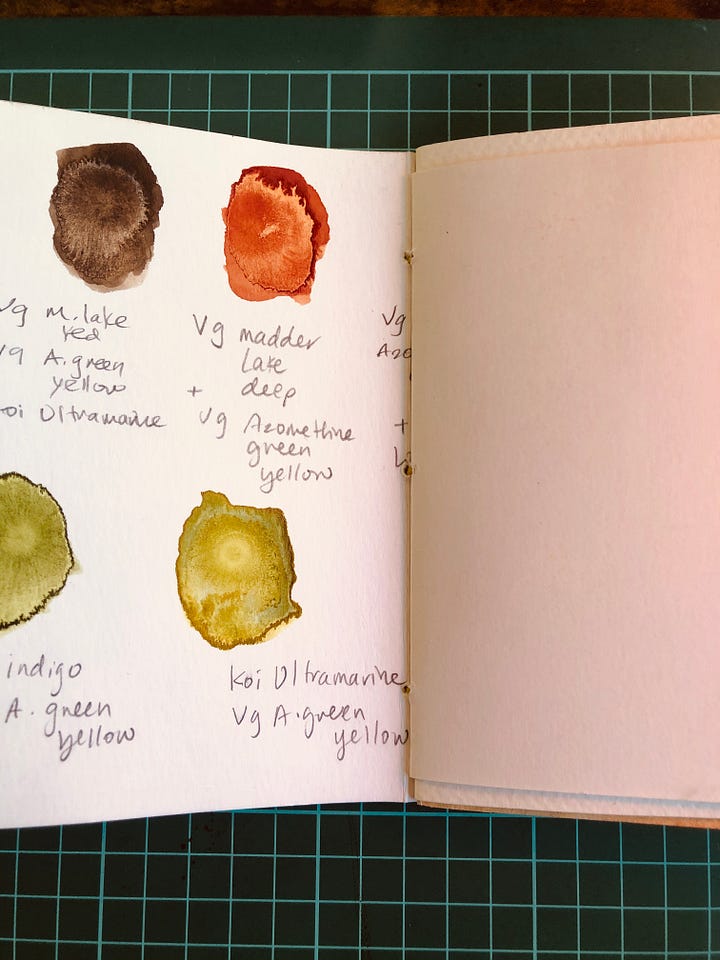 Vg M. lake
red
Vg A. green
yellow
Koi Ultramarine
Vg madder
lake
+ deep
Vg Azomethine
green
yellow
Vg
Azo
+
indigo
A. green
yellow
Koi Ultramarine
Vg A. green
yellow